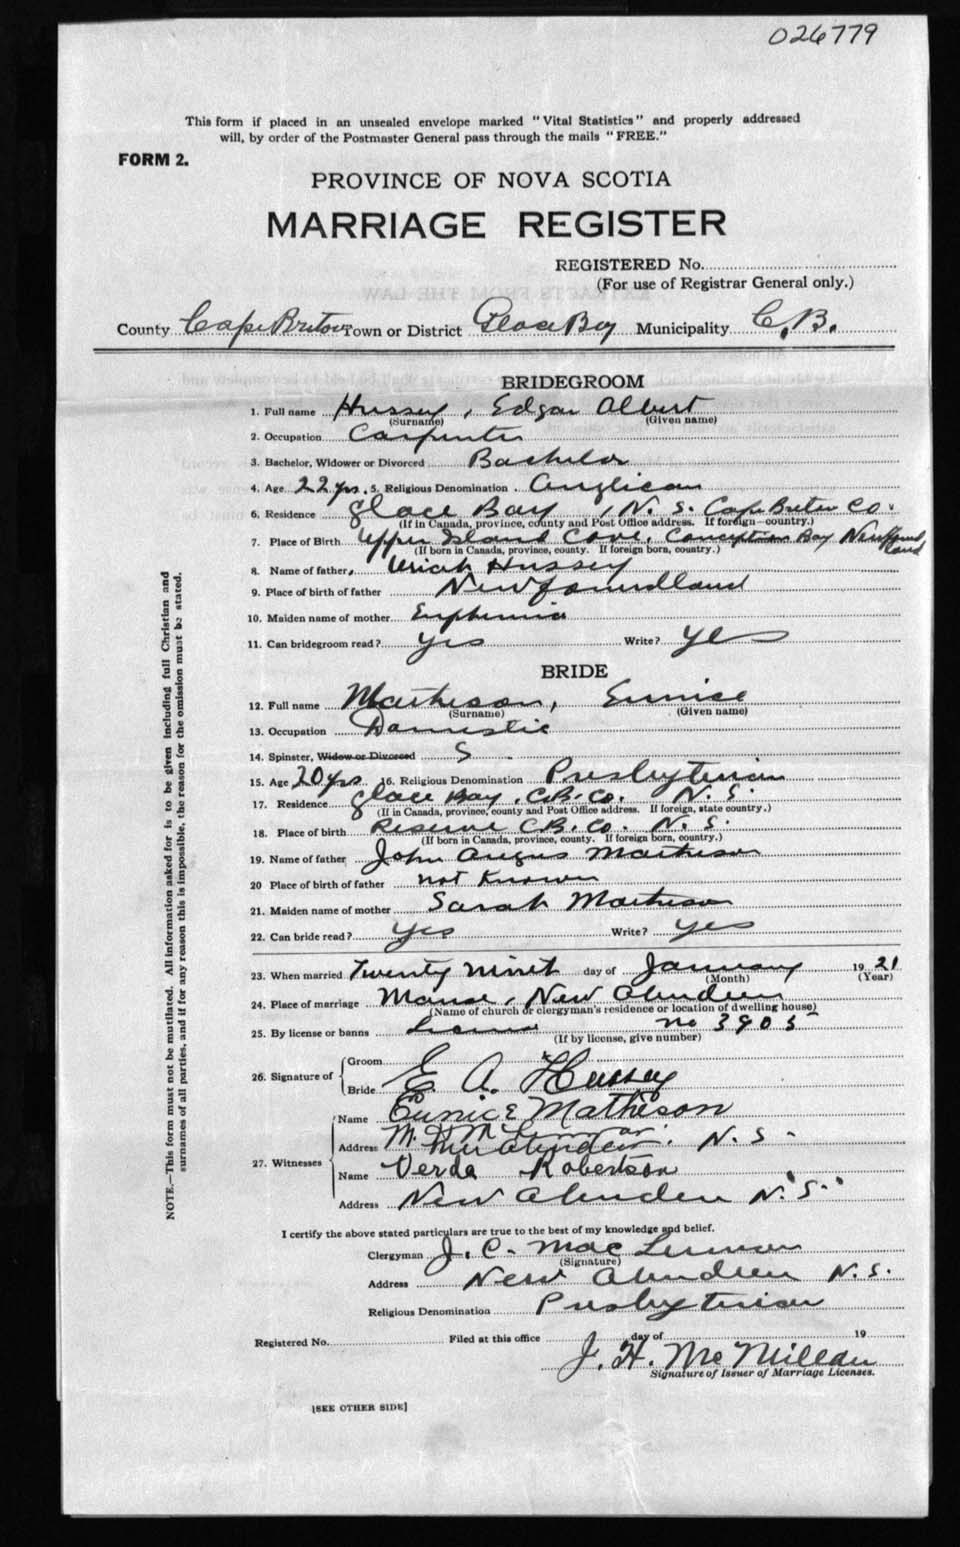 026779
This form if placed in an unsealed envelope marked "Vital Statistics" and properly addressed
will, by order of the Postmaster General pass through the mails "FREE."
FORM 2.
PROVINCE OF NOVA SCOTIA
MARRIAGE REGISTER
REGISTERED No.
(For use of Registrar General only.)
County Cape Breton Town or District Glace Bay Municipality C.B.
BRIDEGROOM
1. Full name Hussey, Edgar Albert
(Surname) (Given name)
2. Occupation Carpenter
3. Bachelor, Widower or Divorced Bachelor
4. Age 22 yrs. 5. Religious Denomination Anglican
6. Residence Glace Bay, N. S. Cape Breton Co.
(If in Canada, province, county and Post Office address. If foreign—country.)
7. Place of Birth Upper Island Cove, Conception Bay Newfoundland
(If born in Canada, province, county. If foreign born, country.)
8. Name of father Uriah Hussey
9. Place of birth of father Newfoundland
10. Maiden name of mother Euphemia
11. Can bridegroom read? Yes Write? Yes
BRIDE
12. Full name Matheson, Eunice
(Surname) (Given name)
13. Occupation Domestic
14. Spinster, Widow or Divorced S
15. Age 20 yrs 16. Religious Denomination Presbyterian
17. Residence Glace Bay, C.B. Co. N. S.
(If in Canada, province, county and Post Office address. If foreign, state country.)
18. Place of birth Reserve C.B. Co. N. S.
(If born in Canada, province, county. If foreign born, country.)
19. Name of father John Angus Matheson
20 Place of birth of father not known
21. Maiden name of mother Sarah Matheson
22. Can bride read? Yes Write? Yes
23. When married Twenty day of January 1921
(Month) (Year)
24. Place of marriage Manse, New Aberdeen
(Name of church or clergyman's residence or location of dwelling house)
25. By license or banns License no 3905
(If by license, give number)
26. Signature of Groom
Bride E. A. Hussey
27. Witnesses Name Eunice Matheson
Address N. S.
Name Verda Robertson
Address New Aberdeen N. S.
I certify the above stated particulars are true to the best of my knowledge and belief.
Clergyman J. C. MacLennan
(Signature)
Address New Aberdeen N. S.
Religious Denomination Presbyterian
Registered No. Filed at this office day of 19
J. H. McMillan
Signature of Issuer of Marriage Licenses.
[SEE OTHER SIDE]
NOTE.—This form must not be mutilated. All information asked for is to be given including full Christian and
surnames of all parties, and if for any reason this is impossible, the reason for the omission must be stated.